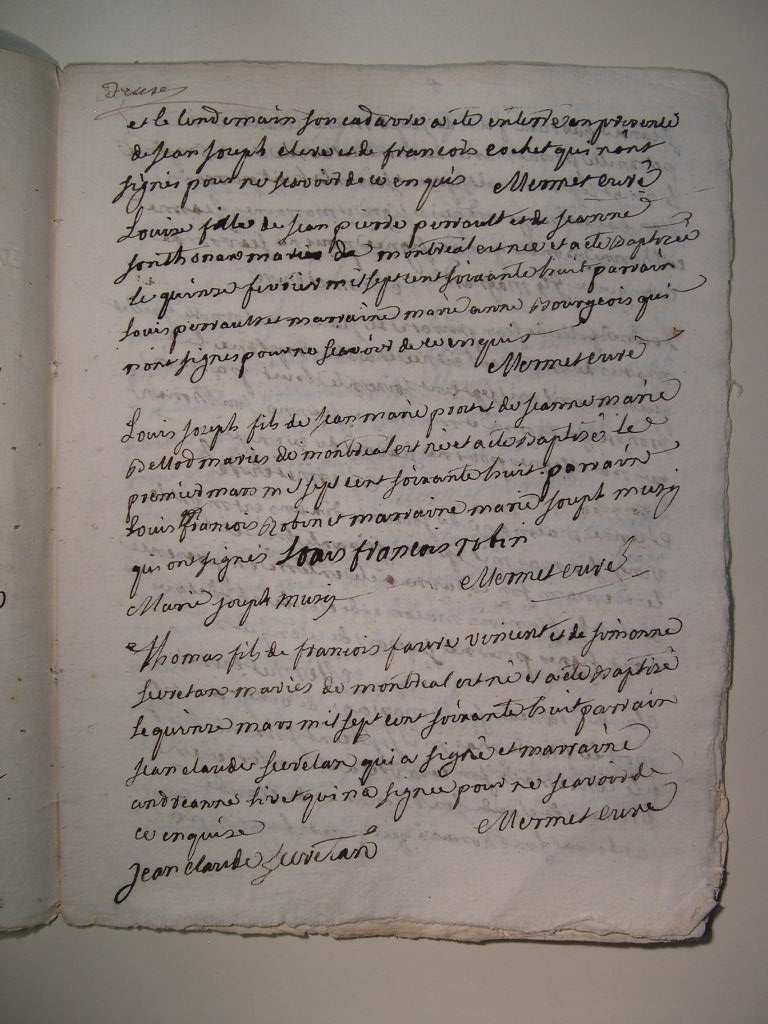 et le lendemain son cadavre a ete enterré en presence
de jean joseph clere et de francois cochet qui nont
signés pour ne scavoir de ce enquis Mermet curé
Louise fille de jean pierre perrault et de jeanne
mariés de montreal est née et a ete baptisée
le quinze fevrier mil sept cent soixante huit parrain
louis perrault et marraine marie anne Bourgeois qui
nont signés pour ne scavoir de ce enquis
Mermet curé
Louis joseph fils de jean marie et de jeanne marie
mariés de montreal est né et a ete baptisé le
premier mars mil sept cent soixante huit parrain
Louis francois Robin et marraine marie joseph muzy
qui ont signés Louis francois robin
Marie joseph muzy Mermet curé
Thomas fils de francois favre vincent et de simonne
secretan mariés de montreal est né et a ete baptisé
le quinze mars mil sept cent soixante huit parrain
jean claude secretan qui a signé et marraine
andreanne livet qui n'a signée pour ne scavoir de
ce enquise Mermet curé
jean claude secretan